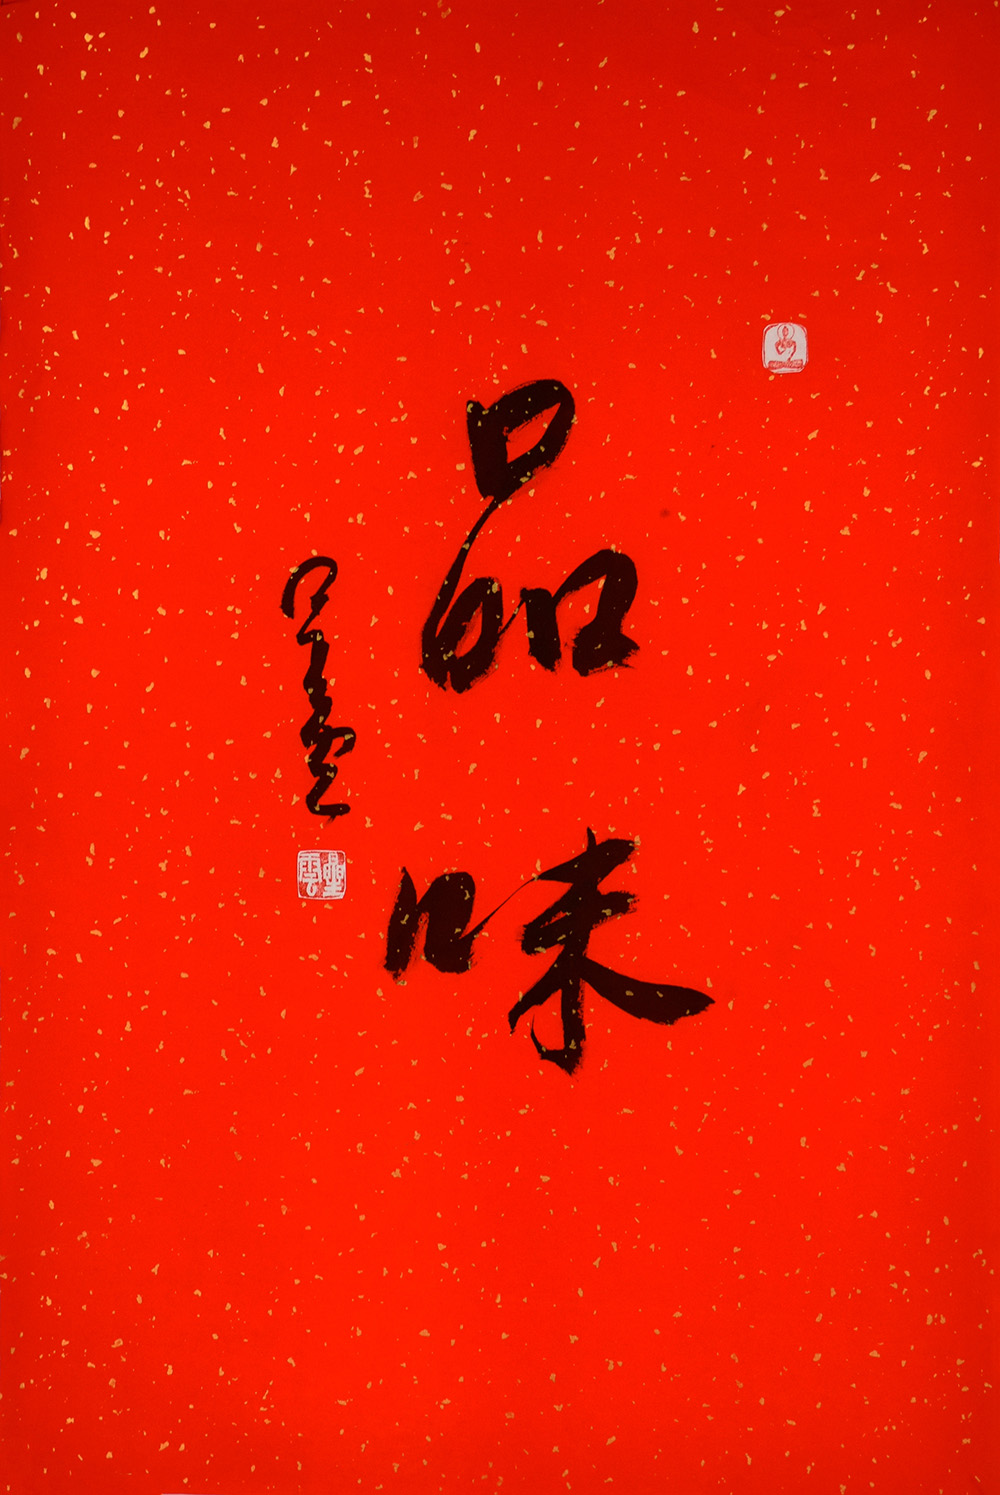 品味
星雲
星雲